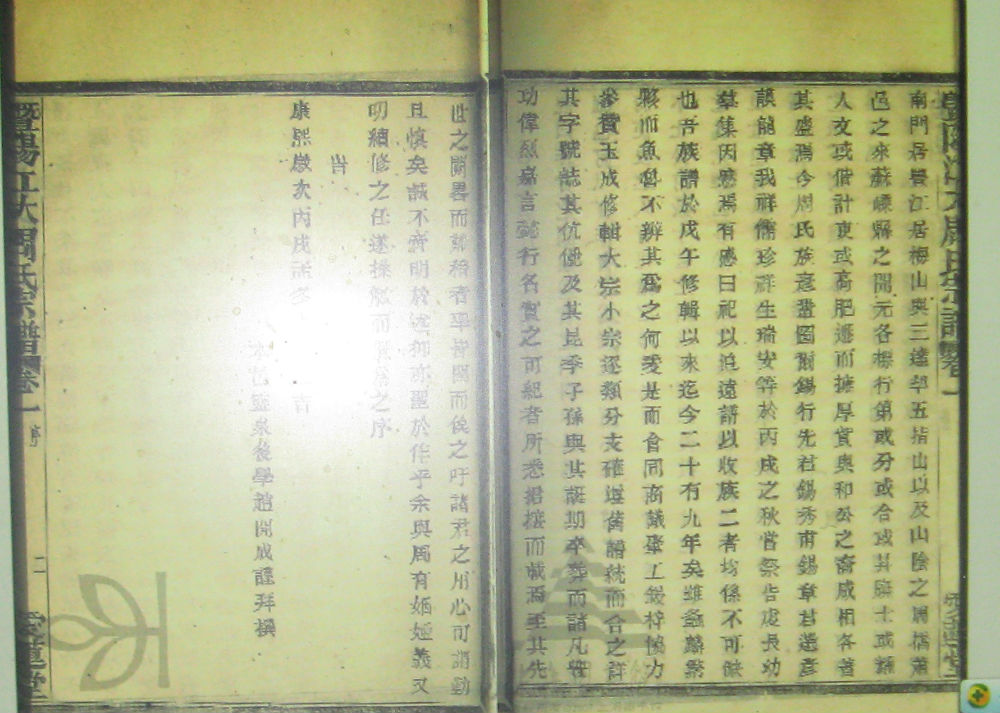 暨陽江大周氏宗譜卷一
愛蓮堂
南門居暨江居梅山與三達邨五指山以及山陰之周橋蕭
邑之來蘇嵊縣之開元各標行第或分或合或其騷士或
人文或偕計吏或高肥遯而擁厚貲與和公之裔咸相各著
其盛焉今周氏族彥 圖爾錫行先君錫秀甫錫章君選彥
謨龍章我祥儒珍祥生瑞安等於丙戌之秋嘗祭告虔長幼
羣集因感焉有感曰祀以追遠譜以收族二者均係不可
也吾族譜於戊午修輯以來迄今二十有九年矣雖螽麟
夥而魚魯不辨其為之何爰是而會同商議鞏工鋟梓協力
參贊玉成修輯大宗小宗逐類分支確遵舊譜統而合之詳
其字號誌其伉儷及其昆季子孫與其誕期卒葬而諸凡
功偉烈嘉言懿行名實之可紀者所悉搢 而咸焉至其先
世之闕畧而 稽者率皆闕而俟之吁諸君之用心可謂勤
且慎矣誠不 明於述抑亦聖於作乎余與周有姻婭義又
明續修之任遂操觚而 為之序
峕
康熙歲次丙戌孟冬 吉
本邑鑒泉後學趙開成謹拜撰
暨陽江大周氏宗譜卷一 序
二
愛蓮堂